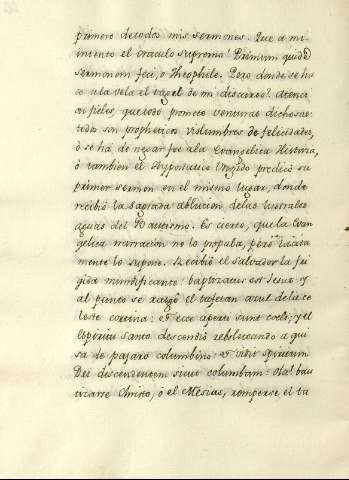 primero de todos mis sermones. Que a mi
intento el oraculo supremo! Primum quidẽ
Sermonem feci, o Theophile. Pero donde se hi
zo a la vela el bagel de mi discurso? Atenci
on fieles, que todo promete venturas dichosas:
todas son prophecias vislumbres de felicidades,
ò se ha de negar fee ala Evangelica Historia,
ò tambien el Hypostatico Ungido predicó su
primer sermon en el mismo lugar, donde
recibiò la sagrada ablucion delas lustrales
aguas del Bautismo. Es cierto, que la Evan
gelica narracion no lo propala, pero tacita
mente lo supone. Recibiò el Salvador la fri
gida mundificante: baptizatus est Jesus: y
al punto se rasgò el tafetan azul de la ce
leste cortina: et ecce aperti sunt coeli; y el
Espiritu Santo descendiò reboloteando a gui
sa de pajaro columbino: et vidit Spiritum
Dei descendentem sicut columbam. Ola! bau
tizarse Christo, ò el Mesias, romperse el ta